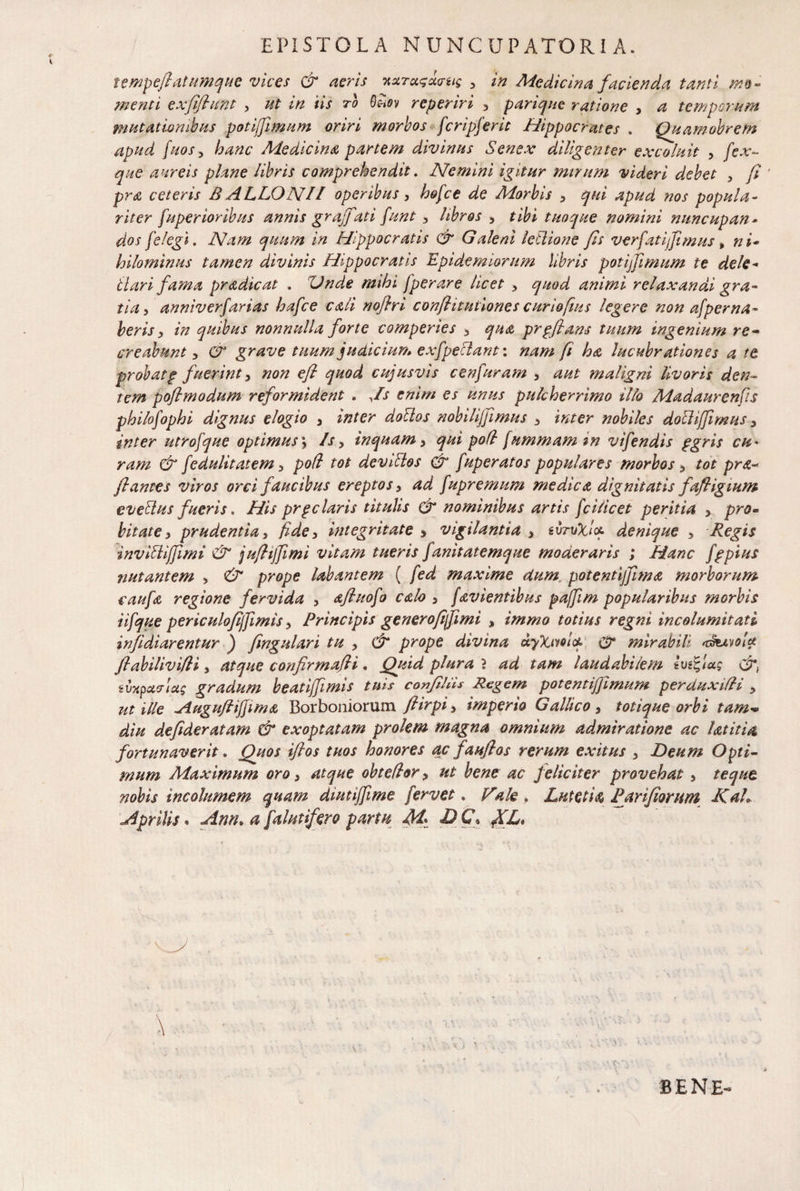 EPISTOLA NUNCUPATORIA.
tempeſtatumque vices & aeris καταςάσεις , in Medicina facienda tanti mo-
menti exſiſtunt , ut in iis τὸ θεῖον reperiri , parique ratione , a temporum
mutationibus potiſſimum oriri morbos ſcripſerit Hippocrates . Quamobrem
apud ſuos, hanc Medicinæ partem divinus Senex diligenter excoluit , ſex-
que aureis plane libris comprehendit. Nemini igitur mirum videri debet , ſi
præ ceteris BALLONII operibus, hoſce de Morbis , qui apud nos popula-
riter ſuperioribus annis graſſati ſunt , libros , tibi tuoque nomini nuncupan-
dos ſelegi. Nam quum in Hippocratis & Galeni lectione ſis verſatiſſimus, ni-
hilominus tamen divinis Hippocratis Epidemiorum libris potiſſimum te dele-
ctari fama prædicat . Unde mihi ſperare licet , quod animi relaxandi gra-
tia, anniverſarias haſce cæli noſtri conſtitutiones curioſius legere non aſperna-
beris, in quibus nonnulla forte comperies , quæ pręſtans tuum ingenium re-
creabunt , & grave tuum judicium exſpectant: nam ſi hæ lucubrationes a te
probatę fuerint, non eſt quod cujusvis cenſuram , aut maligni livoris den-
tem poſtmodum reformident . Is enim es unus pulcherrimo illo Madaurenſis
philoſophi dignus elogio , inter doctos nobiliſſimus , inter nobiles doctiſſimus,
inter utroſque optimus; Is, inquam, qui poſt ſummam in viſendis ęgris cu-
ram & ſedulitatem, poſt tot devictos & ſuperatos populares morbos, tot præ-
ſtantes viros orci faucibus ereptos, ad ſupremum medicæ dignitatis faſtigium
evectus fueris. His pręclaris titulis & nominibus artis ſcilicet peritia , pro-
bitate, prudentia, fide, integritate , vigilantia , εὐτυχίᾳ denique , Regis
invictiſſimi & juſtiſſimi vitam tueris ſanitatemque moderaris ; Hanc ſępius
nutantem , & prope labantem ( ſed maxime dum potentiſſimæ morborum
cauſæ regione fervida , æſtuoſo cælo , ſævientibus paſſim popularibus morbis
iiſque periculoſiſſimis, Principis generoſiſſimi , immo totius regni incolumitati
inſidiarentur ) ſingulari tu , & prope divina ἀγχινοίᾳ & mirabili
ſtabiliviſti, atque confirmaſti. Quid plura ? ad tam laudabilem εὐεξίας &
εὐκρασίας gradum beatiſſimis tuis conſiliis Regem potentiſſimum perduxiſti ,
ut ille Auguſtiſſimæ Borboniorum ſtirpi, imperio Gallico , totique orbi tam-
diu deſideratam & exoptatam prolem magna omnium admiratione ac lætitia
fortunaverit. Quos iſtos tuos honores ac fauſtos rerum exitus , Deum Opti-
mum Maximum oro, atque obteſtor, ut bene ac feliciter provehat , teque
nobis incolumem quam diutiſſime ſervet . Vale . Lutetiæ Pariſiorum Kal.
Aprilis . Ann. a ſalutifero partu M. DC. XL.
BENE-